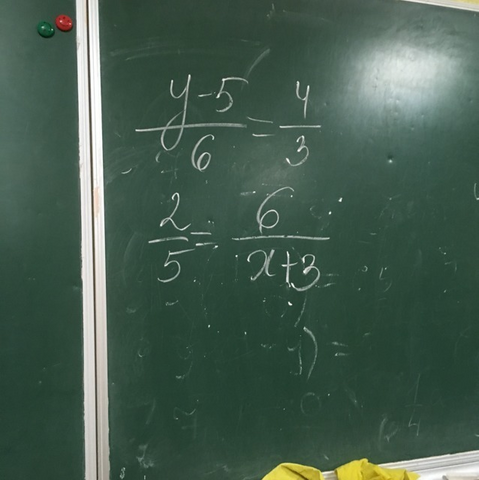 y-5/6 = 4/3
2/5 = 6/x+3